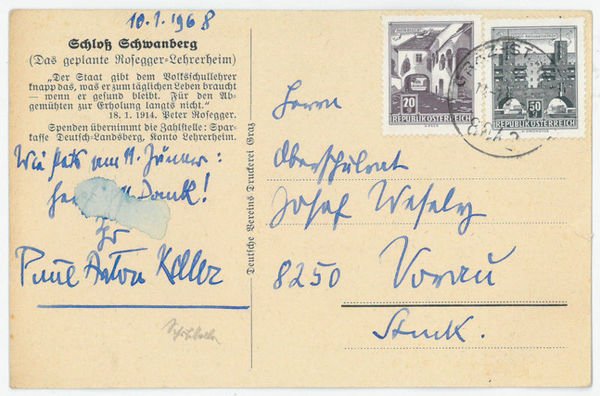 10.1.1968
Schloß Schwanberg
(Das geplante Rosegger-Lehrerheim)
„Der Staat gibt dem Volksschullehrer
knapp das, was er zum täglichen Leben braucht
— wenn er gesund bleibt. Für den Ab-
gemühten zur Erholung langts nicht."
18. 1. 1914. Peter Rosegger.
Spenden übernimmt die Zahlstelle: Spar-
kasse Deutsch-Landsberg, Konto Lehrerheim.
Wie stets am 11. Jänner:
Dank!
Ihr
Paul Anton Keller
Deutsche Vereins Druckerei Graz
20
REPUBLIK ÖSTERREICH
50
REPUBLIK ÖSTERREICH
GRAZ
Herrn
Oberschulrat
Josef Wesely
8250 Vorau
Steierm.